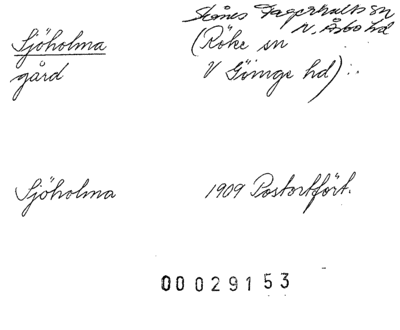 Skånes Fagerhults sn
N. Åsbo hd
Sjöholma (Röke sn
gård V Göinge hd) :.
Sjöholma 1909 Postortfört.
00029153